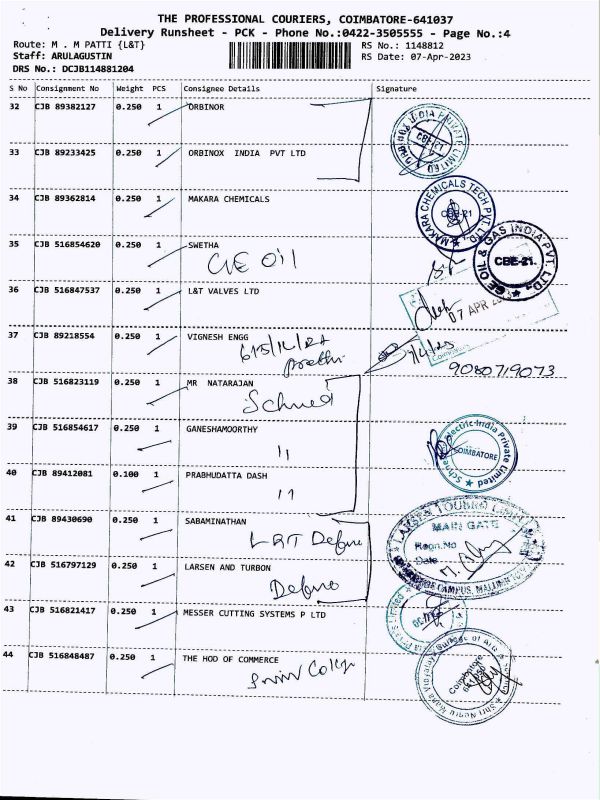 THE PROFESSIONAL COURIERS, COIMBATORE-641037
Delivery Runsheet - PCK - Phone No.:0422-3505555 - Page No.:4
Route: M . M PATTI {L&T} RS No.: 1148812
Staff: ARULAGUSTIN RS Date: 07-Apr-2023
DRS No.: DCJB114881204
S No Consignment No Weight PCS Consignee Details Signature
32 CJB 89382127 0.250 1 ORBINOR
33 CJB 89233425 0.250 1 ORBINOX INDIA PVT LTD
CBE-21
34 CJB 89362814 0.250 1 MAKARA CHEMICALS
MAKARA CHEMICALS TECH PVT. LTD.
CBE-21
35 CJB 516854620 0.250 1 SWETHA
GE OIL
GE OIL & GAS INDIA PVT. LTD.
CBE-21.
36 CJB 516847537 0.250 1 L&T VALVES LTD
07 APR
37 CJB 89218554 0.250 1 VIGNESH ENGG
9080719073
38 CJB 516823119 0.250 1 MR NATARAJAN
39 CJB 516854617 0.250 1 GANESHAMOORTHY
11
Electric India Private Limited
COIMBATORE
40 CJB 89412081 0.100 1 PRABHUDATTA DASH
11
41 CJB 89430690 0.250 1 SABAMINATHAN
L&T Defence
LARSEN & TOUBRO LIMITED
MAIN GATE
Regn.No
Date
42 CJB 516797129 0.250 1 LARSEN AND TURBON
43 CJB 516821417 0.250 1 MESSER CUTTING SYSTEMS P LTD
44 CJB 516848487 0.250 1 THE HOD OF COMMERCE
Coimbatore